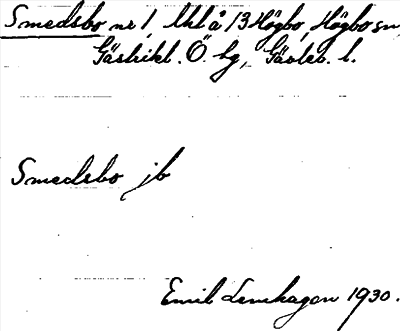 Smedsbo nr 1, Uhl å 13 Högbo, Högbo sn,
Gästrikl. Ö. hg, Gävleb. l.
Smedsbo jb
Emil Lenhagen 1930.